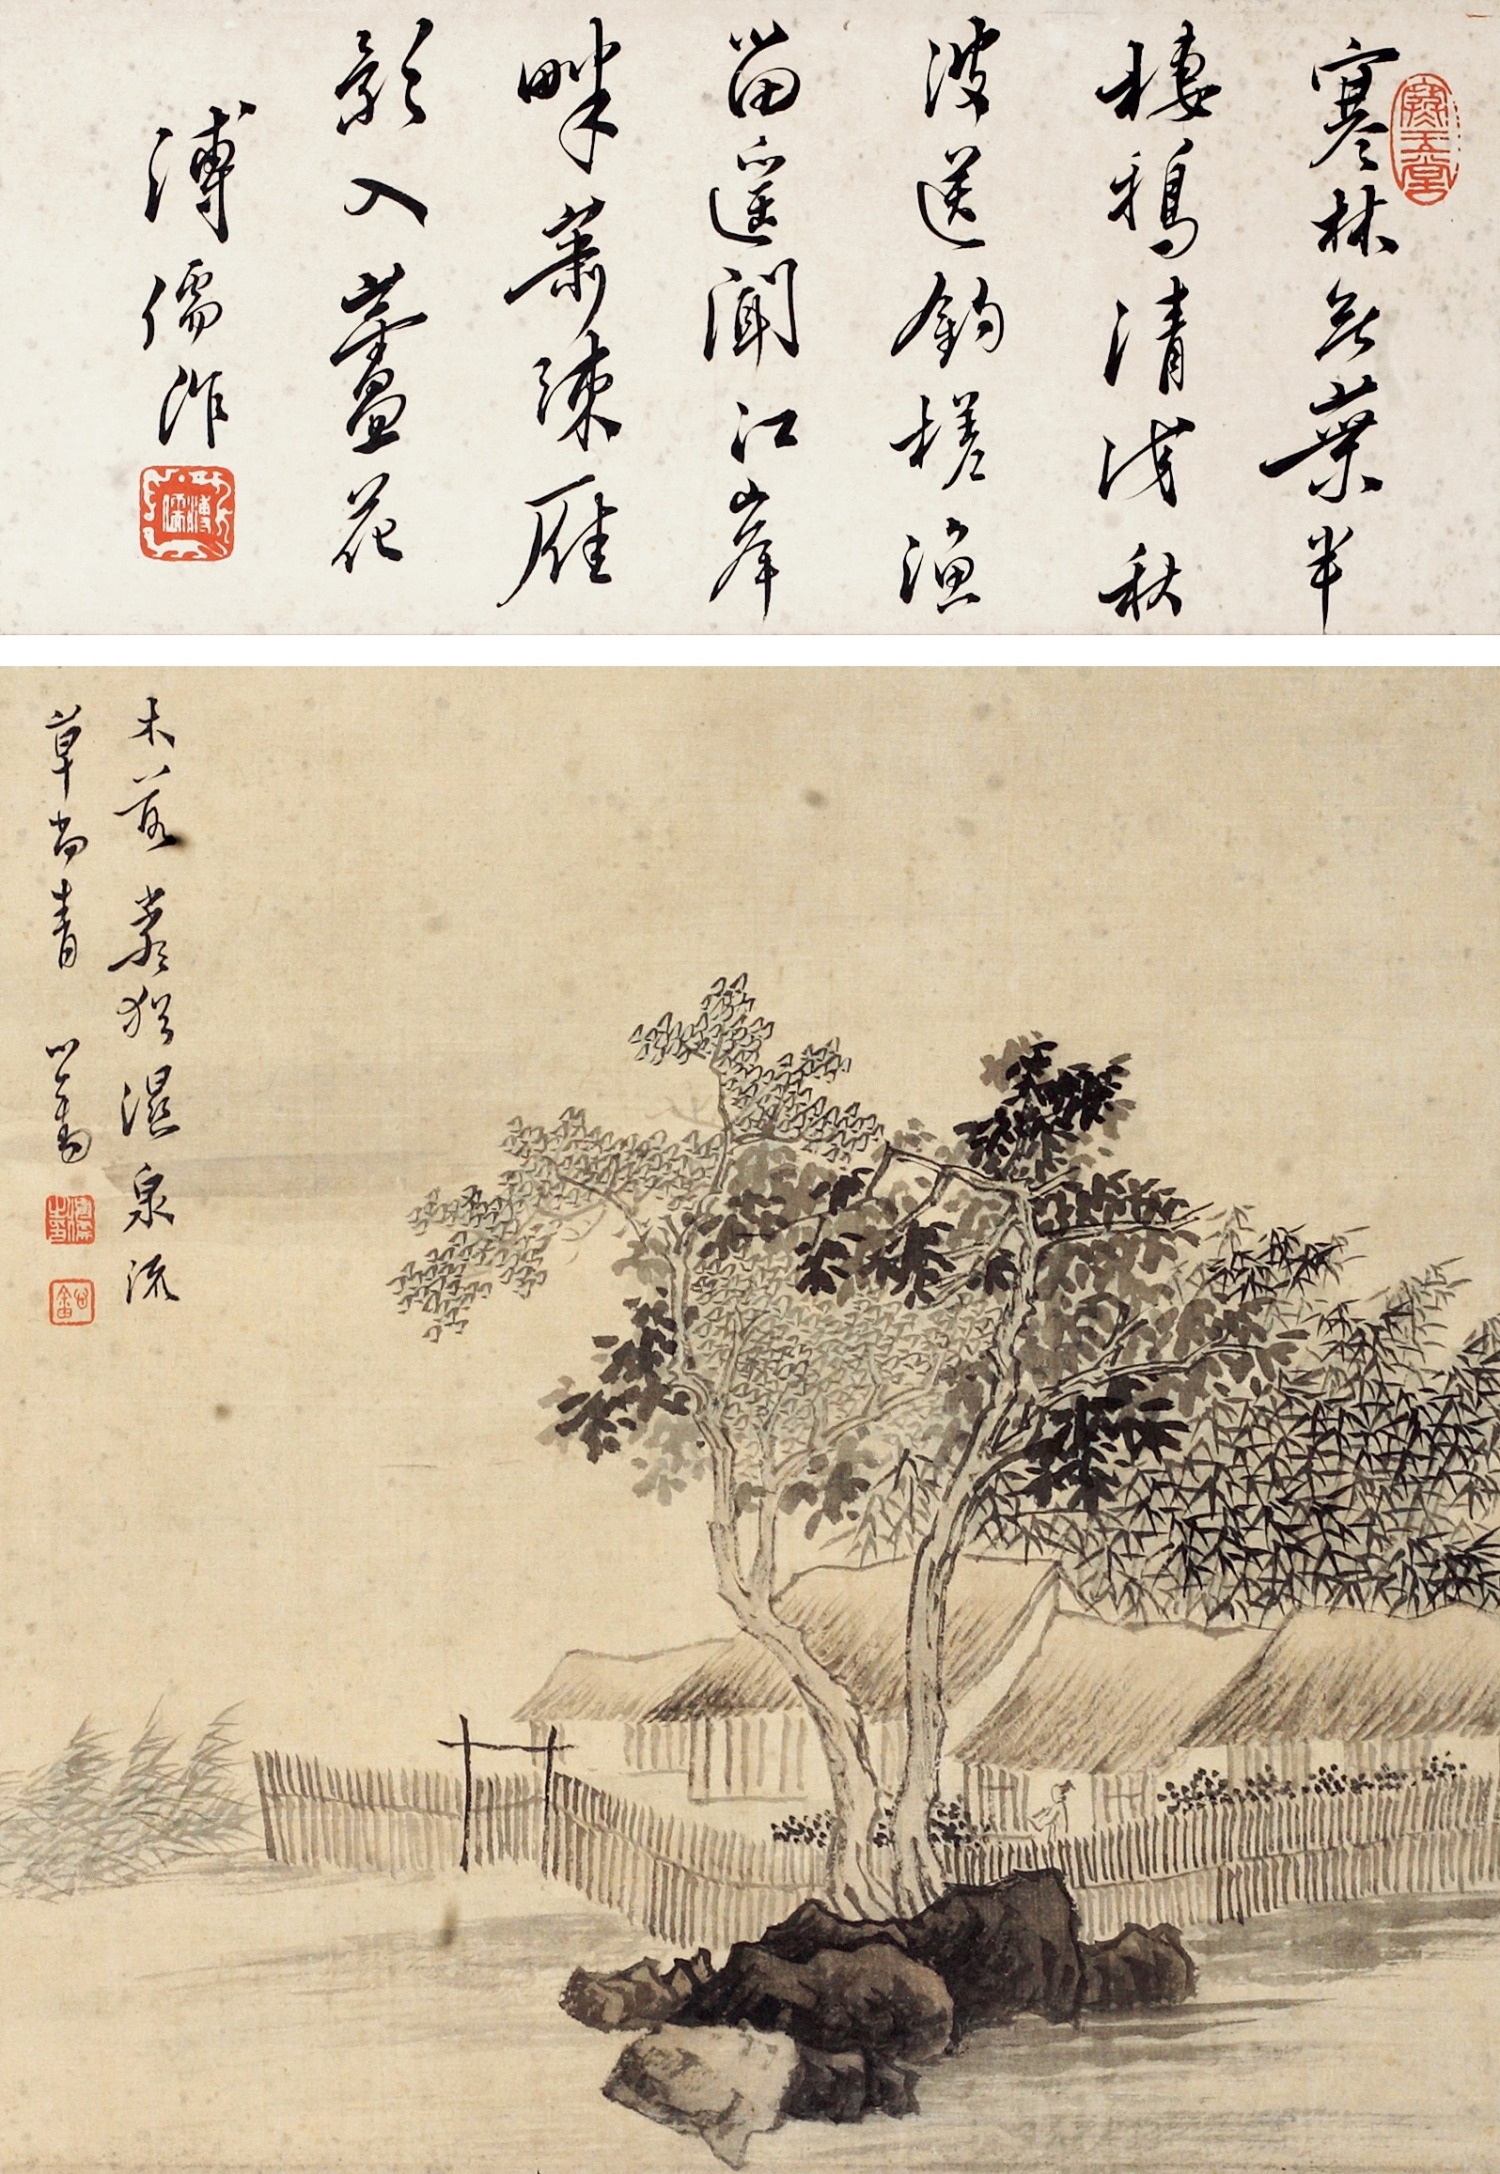 寒林無葉半
棲鴉清淺秋
波送釣槎漁
笛遥聞江岸
畔蕭疎雁
影入蘆花
溥儒作
溥儒
木落巖猶濕泉流
草尚青 心畬
溥儒之印